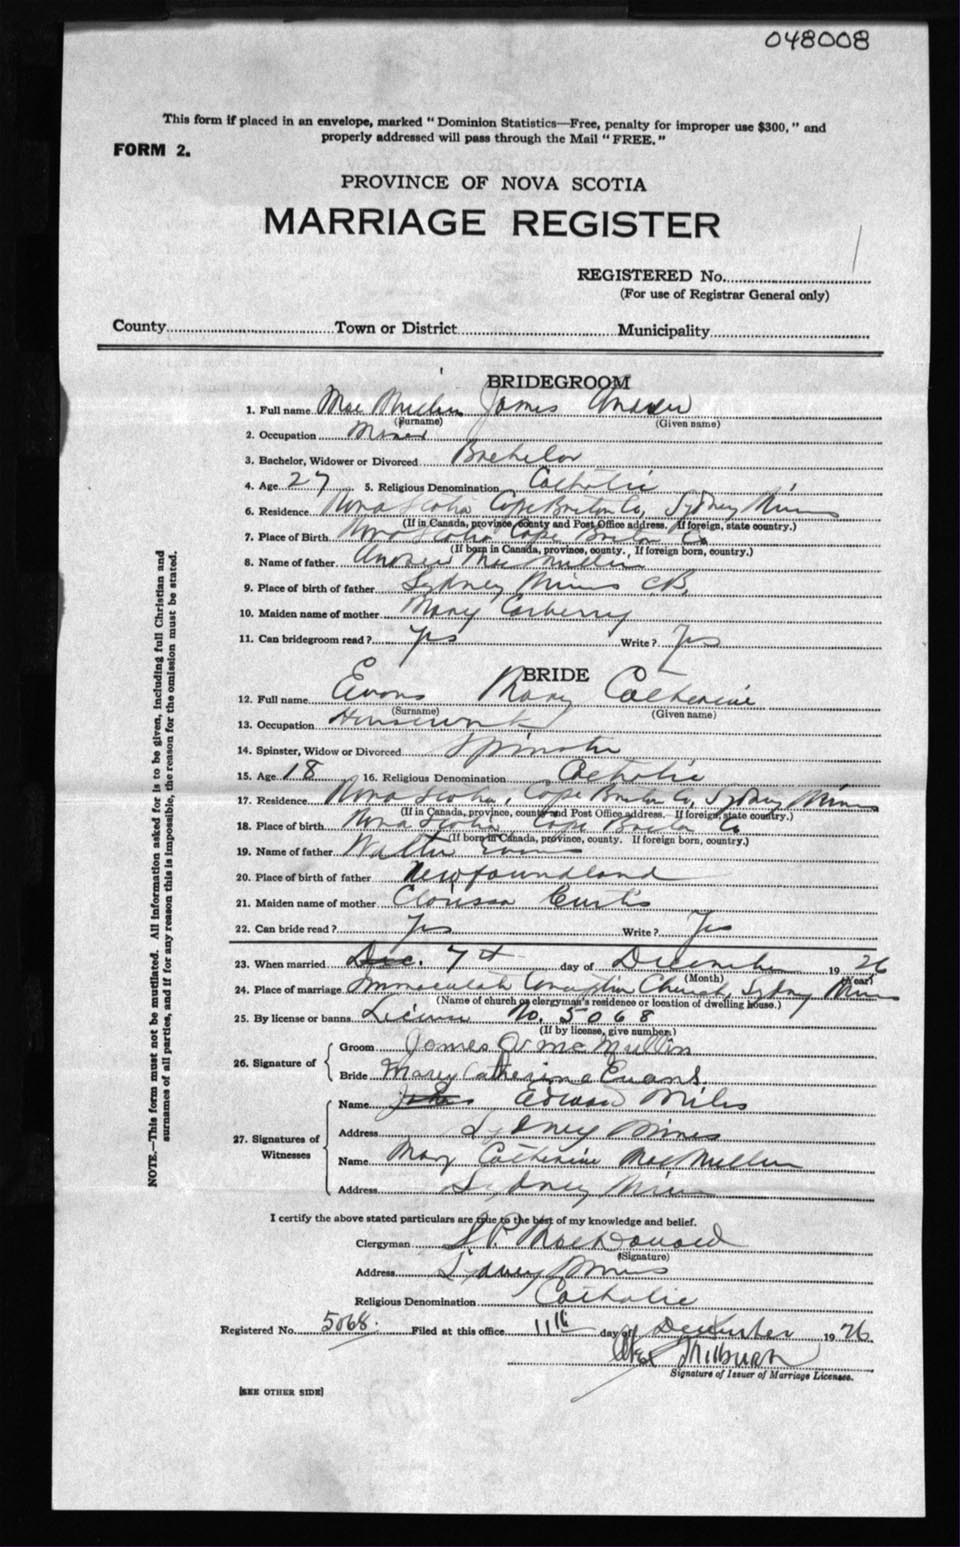 048008
This form if placed in an envelope, marked "Dominion Statistics—Free, penalty for improper use $300," and
properly addressed will pass through the Mail "FREE."
FORM 2.
PROVINCE OF NOVA SCOTIA
MARRIAGE REGISTER
REGISTERED No.
(For use of Registrar General only)
County Town or District Municipality
BRIDEGROOM
1. Full name MacMullin James Andrew
(Surname) (Given name)
2. Occupation Miner
3. Bachelor, Widower or Divorced Bachelor
4. Age 27 5. Religious Denomination Catholic
6. Residence Nova Scotia Cape Breton Co, Sydney Mines
(If in Canada, province, county and Post Office address. If foreign, state country.)
7. Place of Birth Nova Scotia Cape Breton Co
(If born in Canada, province, county. If foreign born, country.)
8. Name of father Andrew MacMullin
9. Place of birth of father Sydney Mines CB,
10. Maiden name of mother Mary Carberry
11. Can bridegroom read? Yes Write? Yes
BRIDE
12. Full name Evans Mary Catherine
(Surname) (Given name)
13. Occupation Housework
14. Spinster, Widow or Divorced Spinster
15. Age 18 16. Religious Denomination Catholic
17. Residence Nova Scotia, Cape Breton Co, Sydney Mines
(If in Canada, province, county and Post Office address. If foreign, state country.)
18. Place of birth Nova Scotia Cape Breton Co
(If born in Canada, province, county. If foreign born, country.)
19. Name of father Walter Evans
20. Place of birth of father Newfoundland
21. Maiden name of mother Clarissa Curtis
22. Can bride read? Yes Write? Yes
23. When married Dec. 7th day of December 1926
(Month) (Year)
24. Place of marriage Immaculate Conception Church, Sydney Mines
(Name of church or clergyman's residence or location of dwelling house.)
25. By license or banns License No. 5068
(If by license, give number.)
26. Signature of
Groom James A McMullin
Bride Mary Catherine Evans.
27. Signatures of Witnesses
Name Edward Miles
Address Sydney Mines
Name Mary Catherine MacMullin
Address Sydney Mines
I certify the above stated particulars are true to the best of my knowledge and belief.
Clergyman MacDonald
(Signature)
Address Sydney Mines
Religious Denomination Catholic
Registered No. 5068. Filed at this office 11th day of December 1926.
Alex Milburn
Signature of Issuer of Marriage Licenses.
[SEE OTHER SIDE]
NOTE.—This form must not be mutilated. All information asked for is to be given, including full Christian and
surnames of all parties, and if for any reason this is impossible, the reason for the omission must be stated.